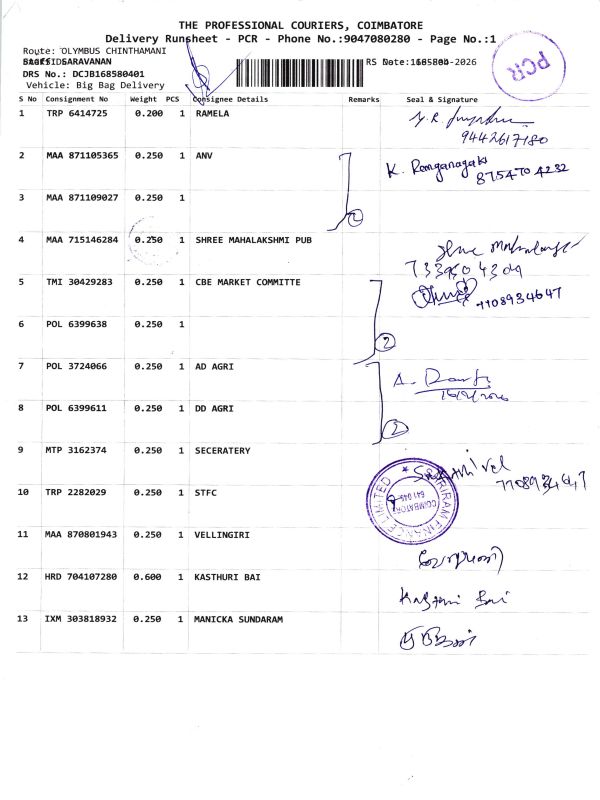 THE PROFESSIONAL COURIERS, COIMBATORE
Delivery Runsheet - PCR - Phone No.:9047080280 - Page No.:1
Route: OLYMBUS CHINTHAMANI
SARAVANAN
RS Date:
-2026
DRS No.: DCJB168580401
Vehicle: Big Bag Delivery
PCR
S No Consignment No Weight PCS Consignee Details Remarks Seal & Signature
1 TRP 6414725 0.200 1 RAMELA
9442617180
2 MAA 871105365 0.250 1 ANV K. Ranganayaki
875470 4232
3 MAA 871109027 0.250 1
2
4 MAA 715146284 0.250 1 SHREE MAHALAKSHMI PUB
5 TMI 30429283 0.250 1 CBE MARKET COMMITTE
7708934647
6 POL 6399638 0.250 1
2
7 POL 3724066 0.250 1 AD AGRI
8 POL 6399611 0.250 1 DD AGRI
2
9 MTP 3162374 0.250 1 SECERATERY
Sakthivel
7708934647
10 TRP 2282029 0.250 1 STFC
SHRIRAM FINANCE LIMITED
COIMBATORE
641 045
11 MAA 870801943 0.250 1 VELLINGIRI
12 HRD 704107280 0.600 1 KASTHURI BAI Kasturi Bai
13 IXM 303818932 0.250 1 MANICKA SUNDARAM